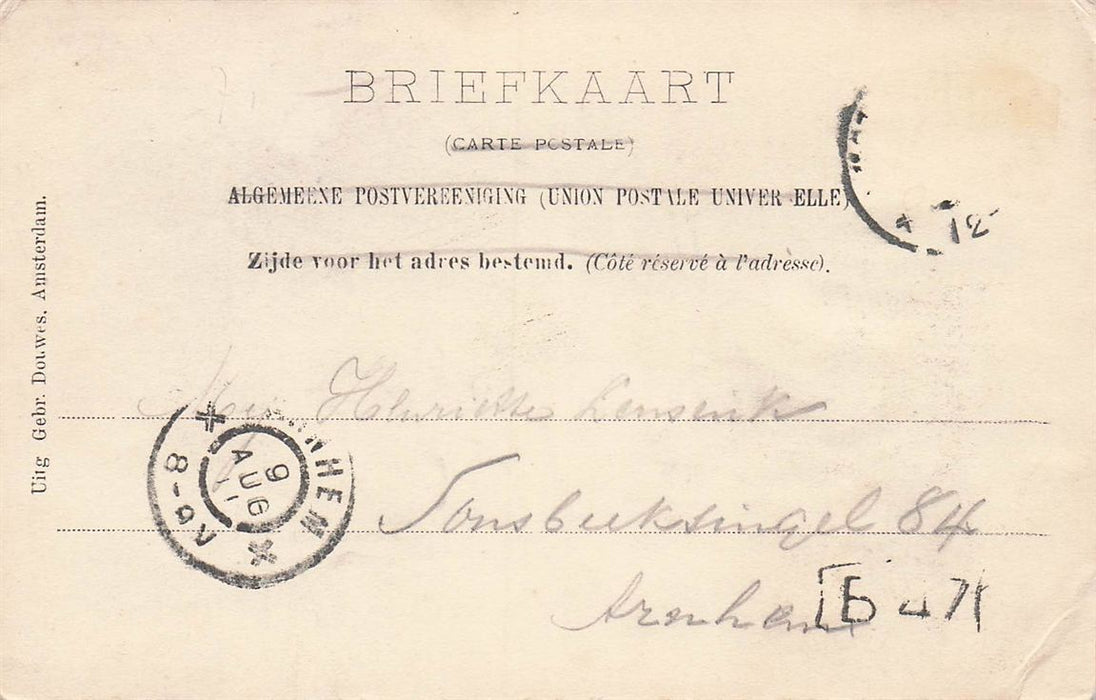 BRIEFKAART
(CARTE POSTALE)
ALGEMEENE POSTVEREENIGING (UNION POSTALE UNIVERSELLE)
Zijde voor het adres bestemd. (Côté réservé à l'adresse).
Uitg Gebr. Douwes. Amsterdam.
12
Mej Henriette Lensink
ARNHEM
9 AUG
8-9N
Sonsbeeksingel 84
Arnhem